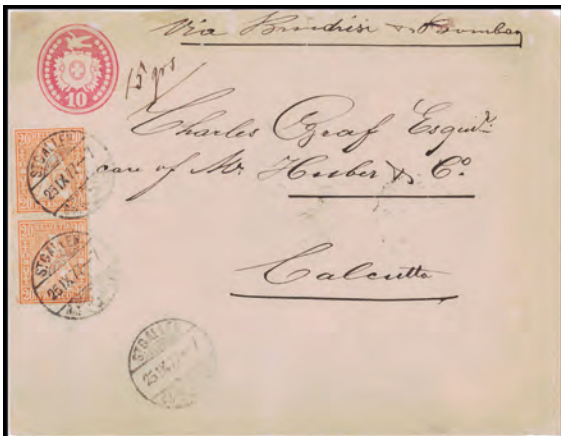 Via Brindisi & Bombay
10
15 grs
Charles Graf Esqu.
care of Mr Huber & Co.
Calcutta
20
20
STGALLEN
25 IX 77 - 7
STGALLEN
25 IX 7
STGALLEN
25 IX 77 - 7